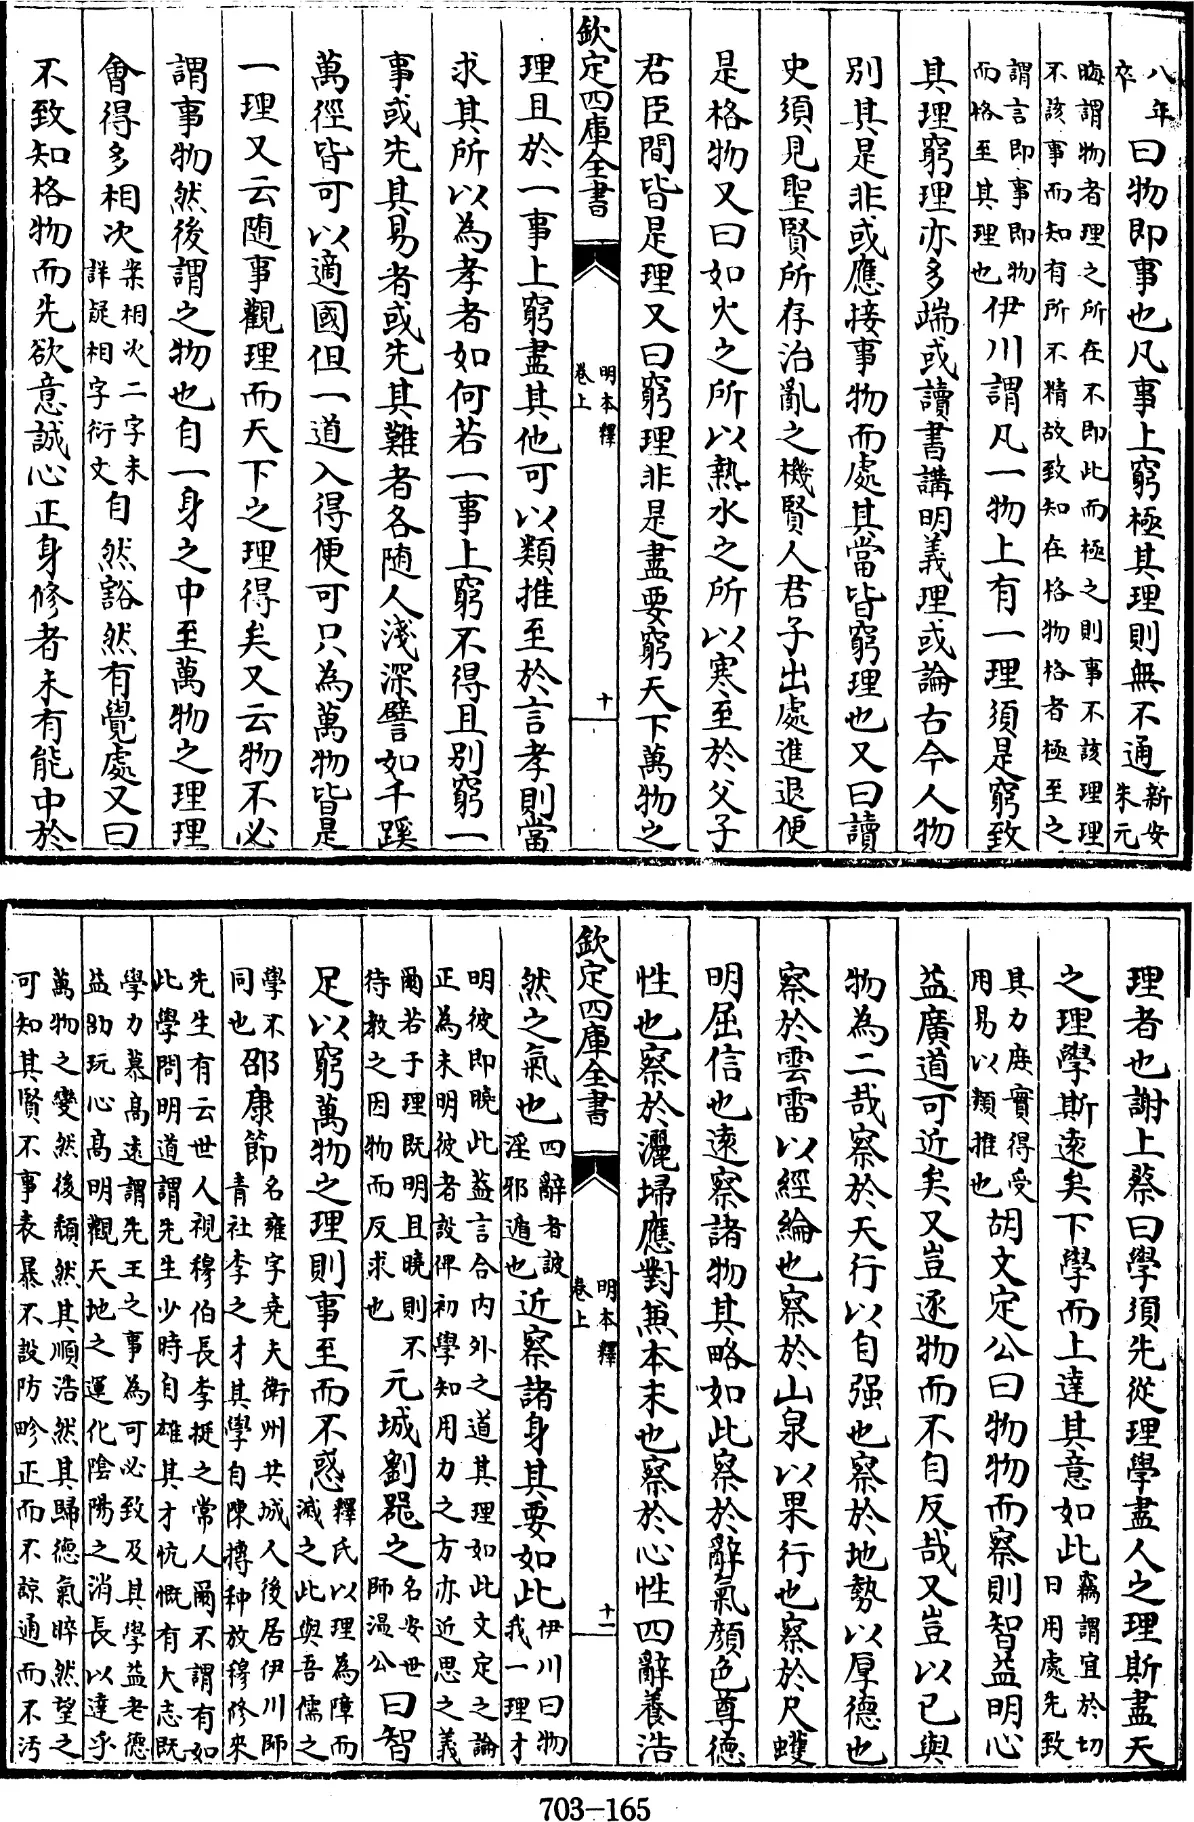 八年
卒
曰物即事也凡事上窮極其理則無不通
新安
朱元
晦謂物者理之所在不即此而極之則事不該理理
不該事而知有所不精故致知在格物格者極至之
謂言即事即物
而格至其理也
伊川謂凡一物上有一理須是窮致
其理窮理亦多端或讀書講明義理或論古今人物
別其是非或應接事物而處其當皆窮理也又曰讀
史須見聖賢所存治亂之機賢人君子出處進退便
是格物又曰如火之所以熱水之所以寒至於父子
君臣間皆是理又曰窮理非是盡要窮天下萬物之
欽定四庫全書
明本釋
卷上
十
理且於一事上窮盡其他可以類推至於言孝則當
求其所以為孝者如何若一事上窮不得且別窮一
事或先其易者或先其難者各随人淺深譬如千蹊
萬徑皆可以適國但一道入得便可只為萬物皆是
一理又云随事觀理而天下之理得矣又云物不必
謂事物然後謂之物也自一身之中至萬物之理理
會得多相次
案相次二字未
詳疑相字衍文
自然豁然有覺處又曰
不致知格物而先欲意誠心正身修者未有能中於
理者也謝上蔡曰學須先從理學盡人之理斯盡天
之理學斯遠矣下學而上達其意如此
竊謂宜於切
日用處先致
其力庶實得受
用易以類推也
胡文定公曰物物而察則智益明心
益廣道可近矣又豈逐物而不自反哉又豈以已與
物為二哉察於天行以自强也察於地勢以厚德也
察於雲雷以經綸也察於山泉以果行也察於尺蠖
明屈信也遠察諸物其略如此察於辭氣顔色尊德
性也察於灑埽應對兼本末也察於心性四辭養浩
欽定四庫全書
明本釋
卷上
十一
然之氣也
四辭者詖
淫邪遁也
近察諸身其要如此
伊川曰物
我一理才
明彼即曉此益言合内外之道其理如此文定之論
正為未明彼者設俾初學知用力之方亦近思之義
爾若于理既明且曉則不
待教之因物而反求也
元城劉噐之
名安世
師温公
曰智
足以窮萬物之理則事至而不惑
釋氏以理為障而
滅之此與吾儒之
學不
同也
邵康節
名雍字堯夫衛州共城人後居伊川師
青社李之才其學自陳摶种放穆修來
先生有云世人視穆伯長李挺之常人爾不謂有如
此學問明道謂先生少時自雄其才忼慨有大志既
學力慕高遠謂先王之事為可必致及其學益老德
益邵玩心高明觀天地之運化陰陽之消長以達乎
萬物之變然後頹然其順浩然其歸德氣睟然望之
可知其賢不事表暴不設防畛正而不諒通而不汚
703-165